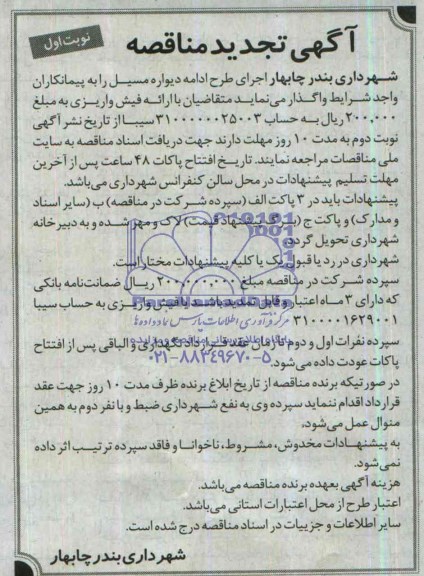 نوبت اول
آگهی تجدید مناقصه
شهرداری بندر چابهار اجرای طرح ادامه دیواره مسیل را به پیمانکاران
واجد شرایط واگذار می‌نماید متقاضیان با ارائه فیش واریزی به مبلغ
۲۰۰,۰۰۰ ریال به حساب ۳۱۰۰۰۰۰۰۲۵۰۰۳ سیبا از تاریخ نشر آگهی
نوبت دوم به مدت ۱۰ روز مهلت دارند جهت دریافت اسناد مناقصه به سایت
ملی مناقصات مراجعه نمایند. تاریخ افتتاح پاکات ۴۸ ساعت پس از آخرین
مهلت تسلیم پیشنهادات در محل سالن کنفرانس شهرداری می‌باشد.
پیشنهادات باید در ۳ پاکت الف (سپرده شرکت در مناقصه) ب (سایر اسناد
و مدارک) و پاکت ج (برگ پیشنهاد قیمت) لاک و مهر شده و به دبیرخانه
شهرداری تحویل گردد.
شهرداری در رد یا قبول یک یا کلیه پیشنهادات مختار است.
سپرده شرکت در مناقصه مبلغ ۲۰۰,۰۰۰,۰۰۰ ریال ضمانت‌نامه بانکی
که دارای ۳ ماه اعتبار و قابل تمدید باشد یا فیش واریزی به حساب سیبا
۳۱۰۰۰۰۱۶۲۹۰۰۱
مرکز فرآوری اطلاعات پارس نماد داده‌ها
سپرده نفرات اول و دوم تا زمان عقد قرارداد نگهداری و الباقی پس از افتتاح
پاکات عودت داده می‌شود.
۰۲۱-۸۸۳۴۹۶۷۰-۵
در صورتیکه برنده مناقصه از تاریخ ابلاغ برنده ظرف مدت ۱۰ روز جهت عقد
قرارداد اقدام ننماید سپرده وی به نفع شهرداری ضبط و با نفر دوم به همین
منوال عمل می‌شود.
به پیشنهادات مخدوش، مشروط، ناخوانا و فاقد سپرده ترتیب اثر داده
نمی‌شود.
هزینه آگهی بعهده برنده مناقصه می‌باشد.
اعتبار طرح از محل اعتبارات استانی می‌باشد.
سایر اطلاعات و جزییات در اسناد مناقصه درج شده است.
شهرداری بندر چابهار